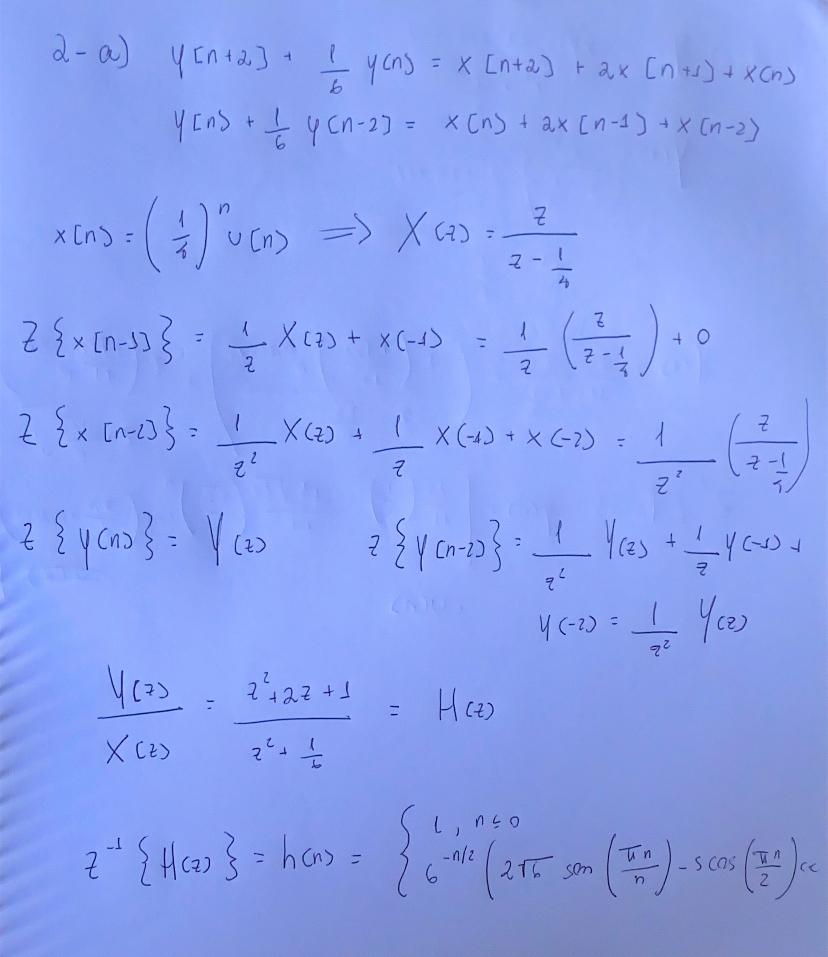 2-a) y[n+2] + 1/6 y[n] = x[n+2] + 2x[n+1] + x[n]
y[n] + 1/6 y[n-2] = x[n] + 2x[n-1] + x[n-2]
x[n] = (1/4)^n u[n] => X(z) = z/(z - 1/4)
Z{x[n-1]} = 1/z X(z) + x(-1) = 1/z (z/(z - 1/4)) + 0
Z{x[n-2]} = 1/z² X(z) + 1/z x(-1) + x(-2) = 1/z² (z/(z - 1/4))
Z{y[n]} = Y(z) Z{y[n-2]} = 1/z² Y(z) + 1/z y(-1) +
y(-2) = 1/z² Y(z)
Y(z)/X(z) = (z² + 2z + 1)/(z² + 1/6) = H(z)
z⁻¹{H(z)} = h[n] = { 1, n ≤ 0
6^(-n/2) (2√6 sen(πn/n) - 5cos(πn/2)